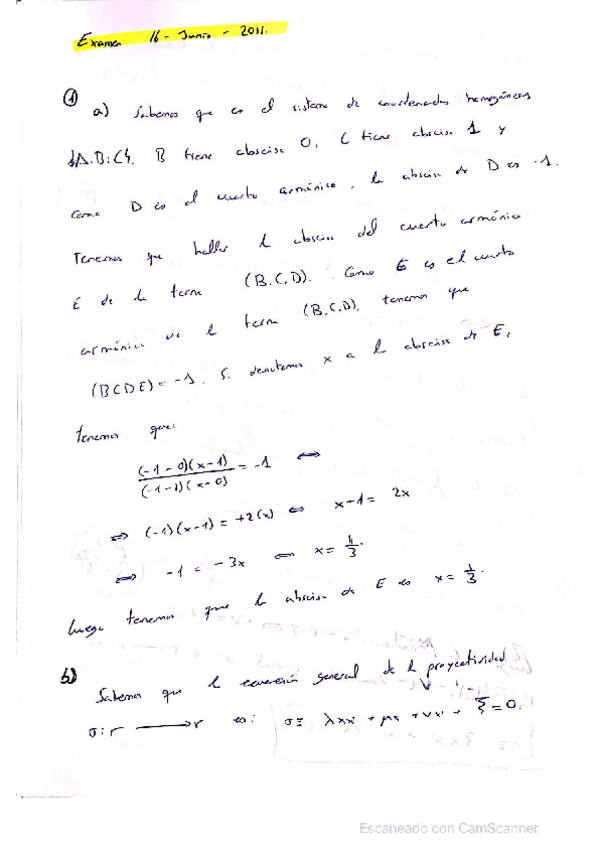 Examen 16 - Junio - 2011.
① a) Sabemos que en el sistema de coordenadas homogéneas
{A,B;C}, B tiene abscisa 0, C tiene abscisa 1 y
como D es el cuarto armónico, la abscisa de D es -1.
Tenemos que hallar la abscisa del cuarto armónico
E de la terna (B,C,D). Como E es el cuarto
armónico de la terna (B,C,D), tenemos que
(BCDE) = -1. Si denotamos x a la abscisa de E,
tenemos que:
(-1-0)(x-1) / (-1-1)(x-0) = -1 ⇔
⇔ (-1)(x-1) = +2(x) ⇔ x-1 = 2x
⇔ -1 = -3x ⇔ x = 1/3.
Luego tenemos que la abscisa de E es x = 1/3.
b) Sabemos que la ecuación general de la proyectividad
σ: r ⟶ r es: σ ≡ λxx' + μx + νx' + ξ = 0.
Escaneado con CamScanner